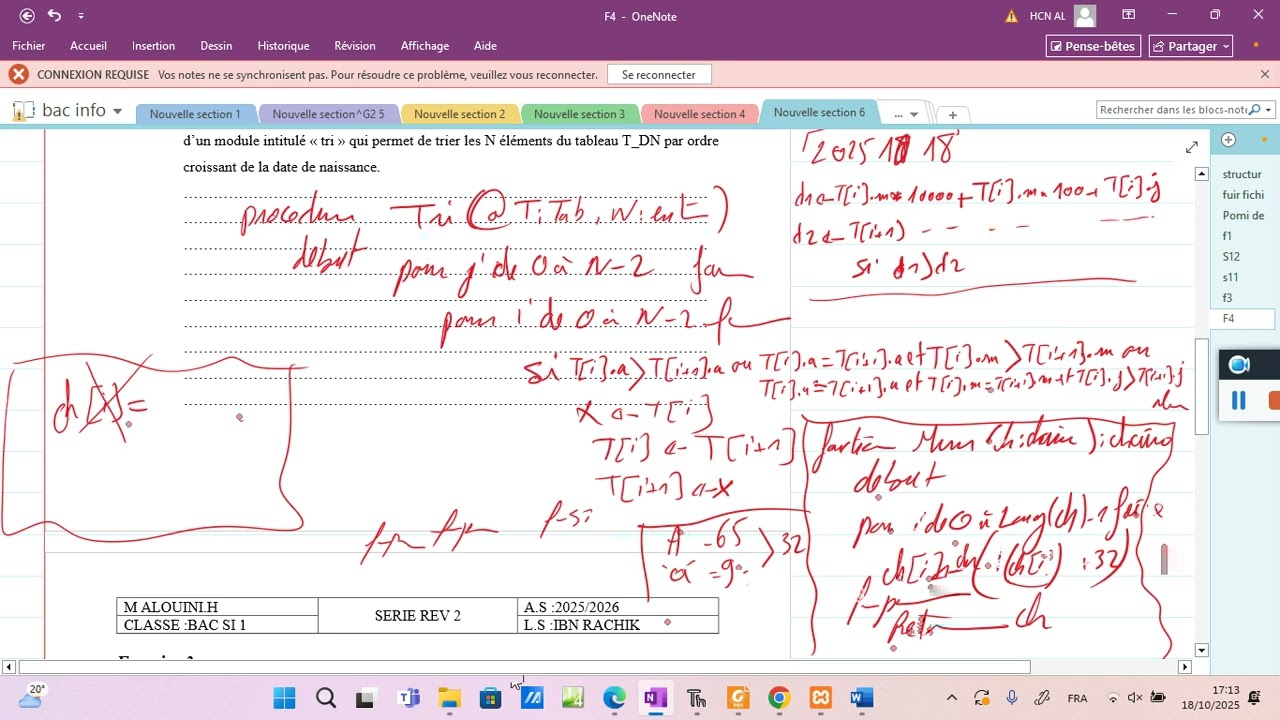 F4 - OneNote
HCN AL
Fichier Accueil Insertion Dessin Historique Révision Affichage Aide
Pense-bêtes Partager
CONNEXION REQUISE Vos notes ne se synchronisent pas. Pour résoudre ce problème, veuillez vous reconnecter. Se reconnecter
bac info Nouvelle section 1 Nouvelle section^G2 5 Nouvelle section 2 Nouvelle section 3 Nouvelle section 4 Nouvelle section 6 ... Rechercher dans les blocs-note
d'un module intitulé « tri » qui permet de trier les N éléments du tableau T_DN par ordre
croissant de la date de naissance.
procedure Tri (@ T: Tab, N: ent)
debut
pour j de 0 à N-2
pour i de 0 à N-2
si T[i].a > T[i+1].a ou T[i].a = T[i+1].a et T[i].m > T[i+1].m ou
T[i].a = T[i+1].a et T[i].m = T[i+1].m et T[i].j > T[i+1].j
X <- T[i]
T[i] <- T[i+1]
T[i+1] <- X
f-si
ch[X]=
A -65
32
d1 <- T[i].m * 10000 + T[i].m * 100 + T[i].j
d2 <- T[i+1]
si d1>d2
debut
pour i de 0 à Long(ch)-1
ch
structur
fuir fichi
Pomi de
f1
S12
s11
f3
F4
M ALOUINI.H
CLASSE :BAC SI 1
SERIE REV 2
A.S :2025/2026
L.S :IBN RACHIK
20°
FRA
17:13
18/10/2025